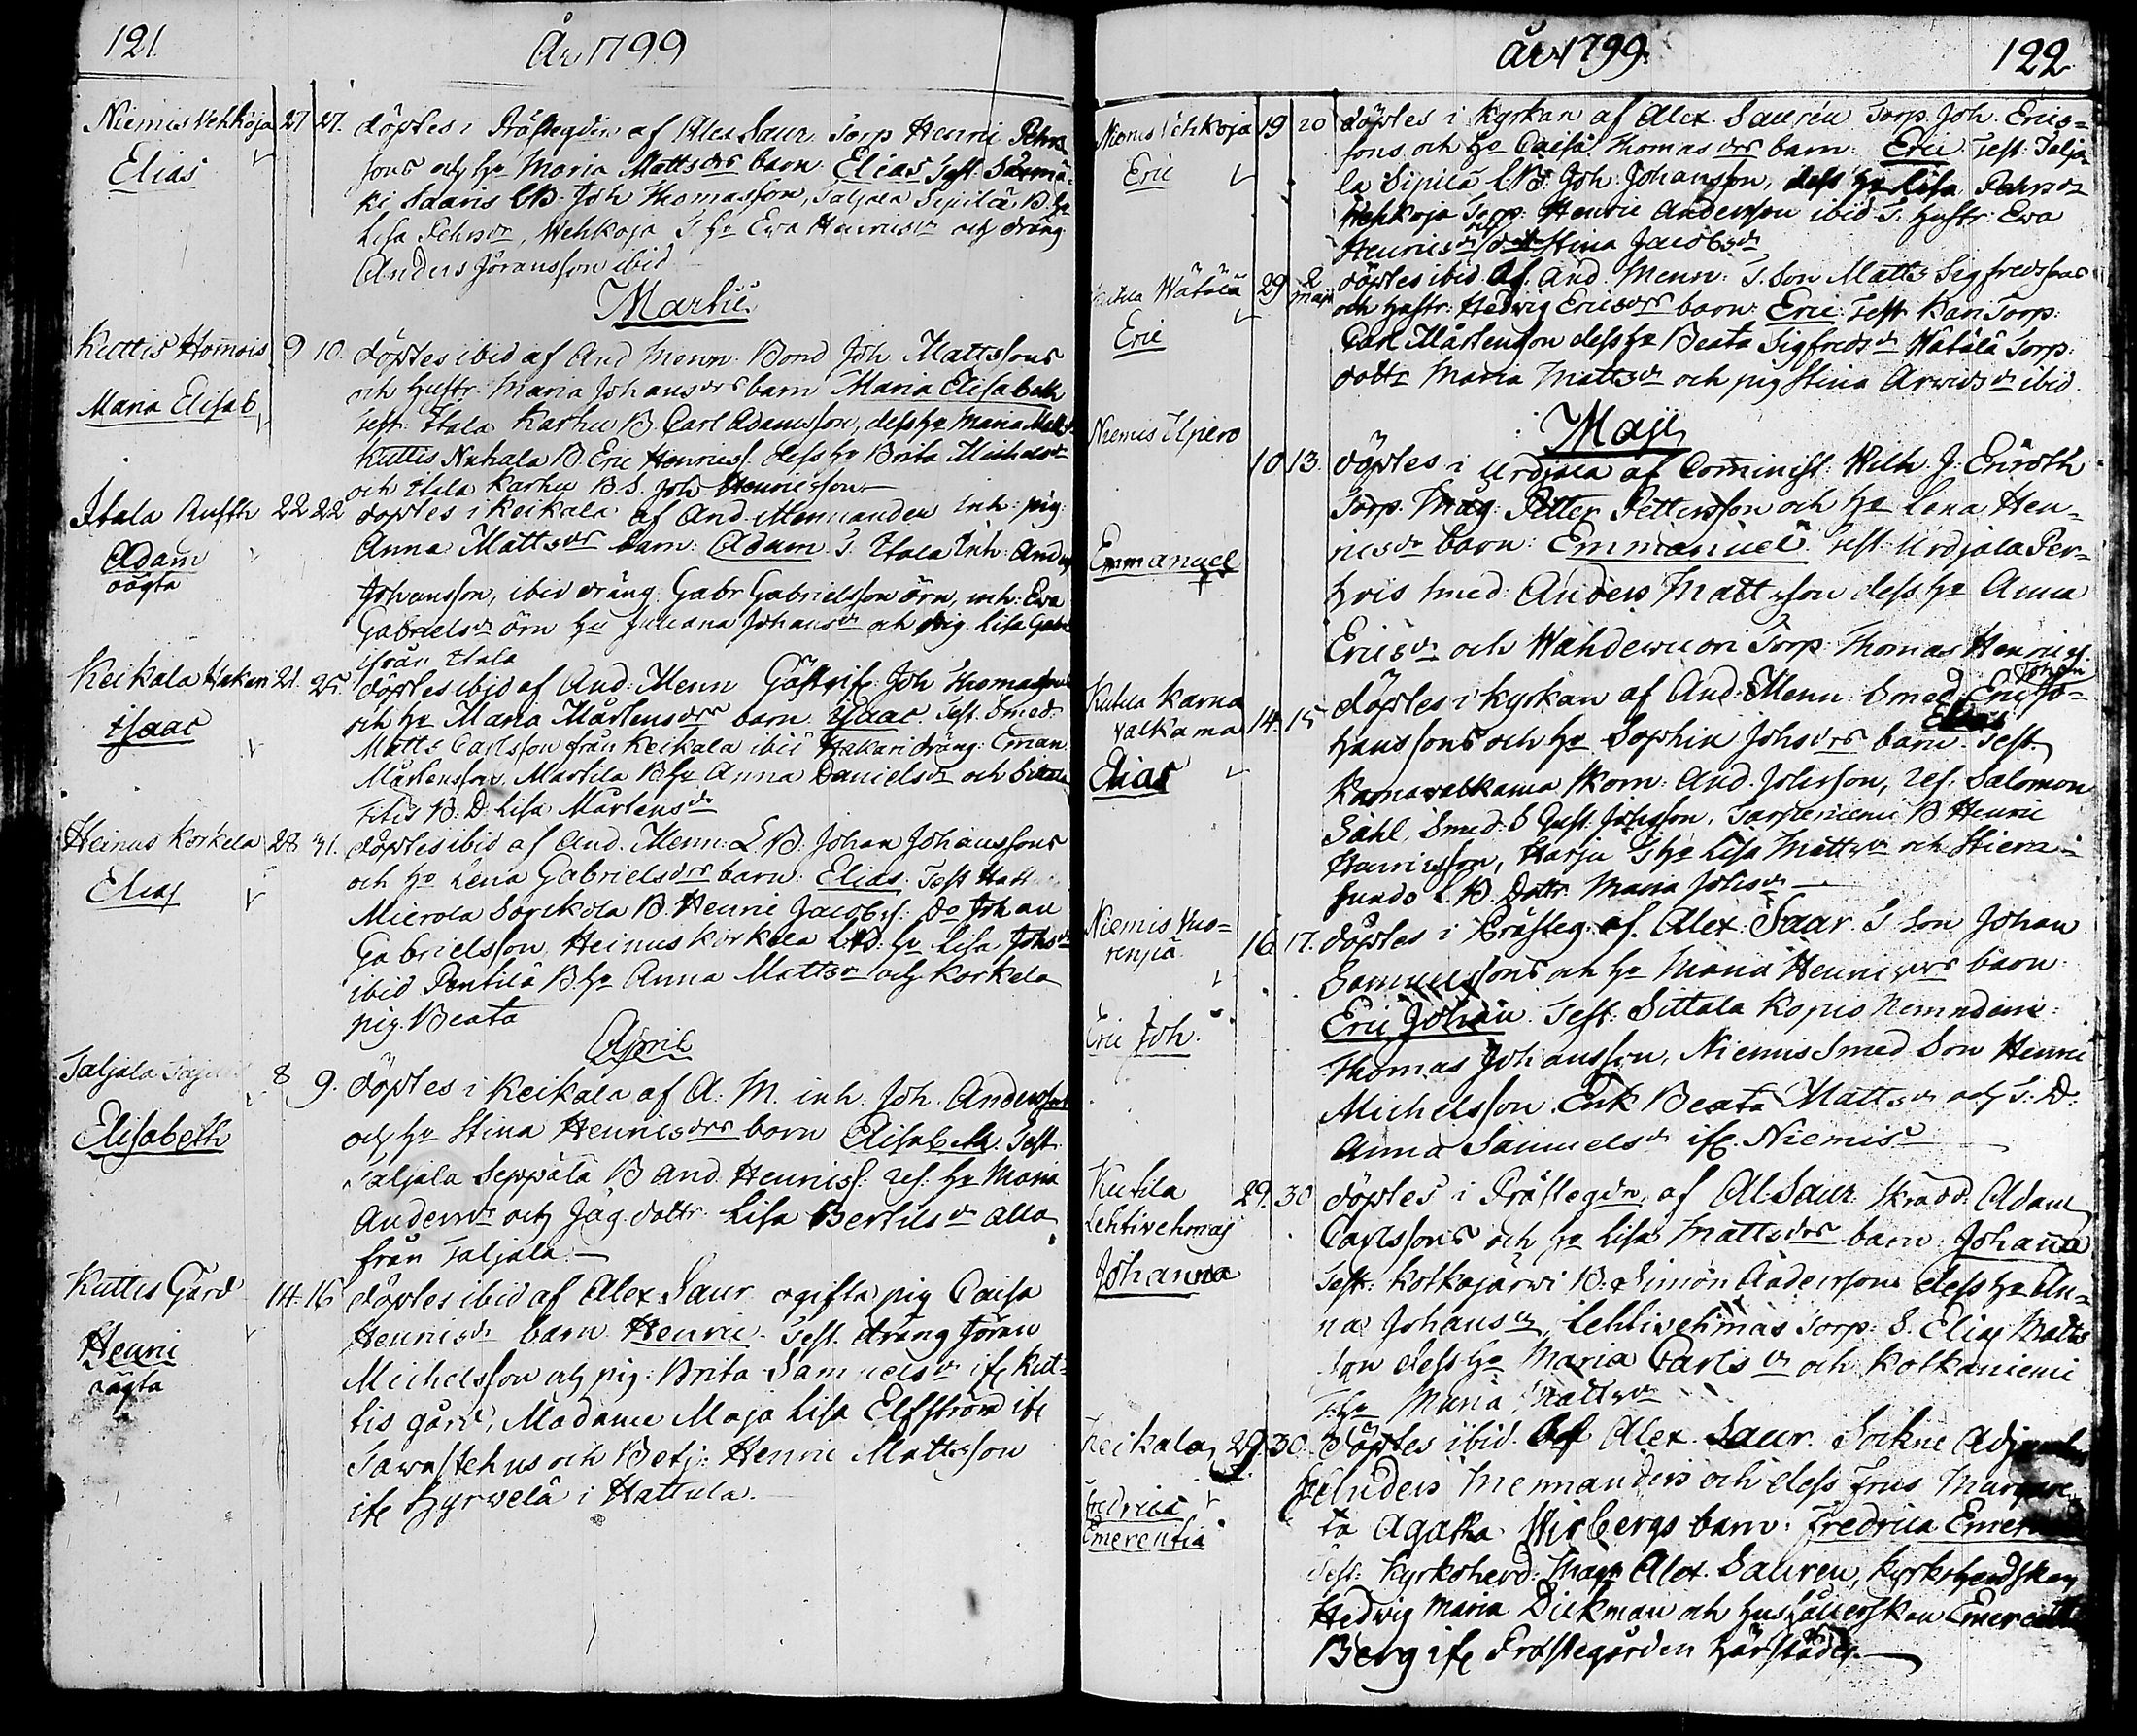 121
År 1799
Niemis Vehkoja 27 27. döptes i Prästegdn af Alex Saur. Torp Henric Pehrs
Elias
sons och Ho Maria Mattsdrs barn Elias Test: Särmä
ki Saaris B. Joh Thomasson, Taljala Sipilä B. Ho
Lisa Pehrsdr, Wehkoja T. Ho Eva Henricsdr och dräng
Anders Göransson ibid
Martii
Kuttis Homois 9 10. döptes ibid af And Menn. Bond Joh Mattssons
och Hustr: Maria Johansdrs barn Maria Elisabeth
Maria Elisab
Test: Itala Karhu B. Carl Adamsson, dess Ho Maria Matts
Kuttis Nuhala B. Eric Henrics. dess Ho Brita Michelsdr
och Itala Karhu B. S. Joh Henricsson
Itala Rusth 22 22 döptes i Keikala af And. Mennander inh: pig:
Adam
oägta
Anna Mattsdrs barn: Adam T. Itala Inh: And
Johansson, ibid dräng: Gabr Gabrielsson örn, inh: Eva
Gabrielsdr örn Hu Juliana Johansdr och pig. Lisa Gabr
ifrån Itala
Keikala Hakari 21. 25. döptes ibid af And: Menn Gästgif: Joh Thomassons
isaac
och Ho Maria Mårtensdrs barn isaac. Test. Smed:
Matts Carlsson från Keikala ibid Hakari dräng: Eman
Mårtensson, Martila B Ho Anna Danielsdr och Sittala
Titis B: D. Lisa Mårtensdr
Heinus Korkela 28 31. döptes ibid af And. Menn: L.B. Johan Johanssons
Elias
och Ho Lena Gabrielsdrs barn: Elias: Test Hatt
Mierola Sorckola B. Henric Jacobss. Do Johan
Gabrielsson, Heinus Korkela LB: Ho Lisa Johsdr
ibid Pentilä B. Ho Anna Mattsdr och Korkela
pig. Beata
April
Taljala 8 9. döptes i Keikala af A: M. inh: Joh. Anderssons
och Ho Stina Henricsdrs barn Elisabeth. Test.
Elisabeth
Taljala Seppälä B And. Henricss: Ho Maria
Andersdr och Jäg. dottr: Lisa Bertilsdr alla
från Taljala.
Kuttis Gård 14. 16 döptes ibid af Alex Saur. ogifta pig Caisa
Henricsdr barn Henric. Test. dräng Jöran
Henric
oägta
Michelsson och pig: Brita Samuelsdr if: Kut-
tis gård, Madame Maja Lisa Elfström if:
Tawastehus och Betj: Henric Mattsson
if: Hyrwelä i Hattula.
år 1799.
122
Niemis Vehkoja 19 20 döptes i Kyrkan af Alex. Saurén Torp. Joh. Erics-
Eric
sons och Ho Caisa Thomasdrs barn: Eric Test: Talja
la Sipilä LB: Joh. Johansson, dess Ho Lisa Pehrsdr
Wehkoja Torp: Henric Andersson ibid T. Hustr: Eva
Henricsdr och Stina Jacobsdr
Kutila Wätälä 29 2 maji döptes ibid. Af And. Menn: T. Son Matts Sigfredssons
och Hustr: Hedvig Ericsdrs barn: Eric. Test: Kari Torp:
Eric
Carl Mårtensson dess Ho Beata Sigfredsdr Wätälä Torp:
dottr Maria Mattsdr och pig Stina Arwidsdr ibid.
Maji
Niemis Ilpero 10 13. döptes i Urdjala af Cominist: Wilh: J: Eneroth
Torp. Måg: Petter Pettersson och Ho Lena Hen-
Emmanuel
ricsdr barn: Emmanuel. Test: Urdjala Per-
hois Smed: Anders Mattsson dess Ho Anna
Ericsdr och Wahdervuori Torp: Thomas Henrics:
Kutila Karna valkama 14. 15 döptes i Kyrkan af And: Menn. Smed Eric Jo-
Johan
hanssons och Ho Sophia Johsdrs barn Elias Test.
Elias
Karnavalkama Skom: And. Johsson, Salomon
Ståhl, Smed: S Gust: Johsson, Tarpeniemi B Henric
Henricsson, Harju T Ho Lisa Mattsdr och Stiern-
sunds L. B. Dottr: Maria Johsdr
Niemis 16. 17. döptes i Prästeg: af. Alex: Saur. T Son Johan
Samuelssons och Ho Maria Henricsdrs barn
Eric Joh.
Eric Johan. Test: Sittala Kopis Nemndem:
Thomas Johansson, Niemis Smed Son Henric
Michelsson Enk Beata Mattsdr och T: D:
Anna Samuelsdr if: Niemis
Kutila Lehtivehmas 29. 30 döptes i Prästegdn af Al: Saur. Skrädd: Adam
Carlssons och Ho Lisa Mattsdrs barn: Johanna
Johanna
Test: Kotkajärwi B: Simon Andersson dess Ho An-
na Johansdr, Lehtivehmas Torp: S. Elias Matts
son dess Ho Maria Carlsdr och Kotkaniemi
T. Ho Maria Mattsdr
Keikala 29. 30. döptes ibid. Af Alex. Saur. Sockne Adjuncten
Anders Mennanders och dess Frus Margare
Fredrica Emerentia
ta Agatha Wirbergs barn: Fredrica Emerentia
Test: Kyrkoherd: Mag Alex. Saurén, Kyrkoherdskan
Hedvig Maria Dickman och Hushållerskan Emerentia
Berg if: Prästegården härstädes.